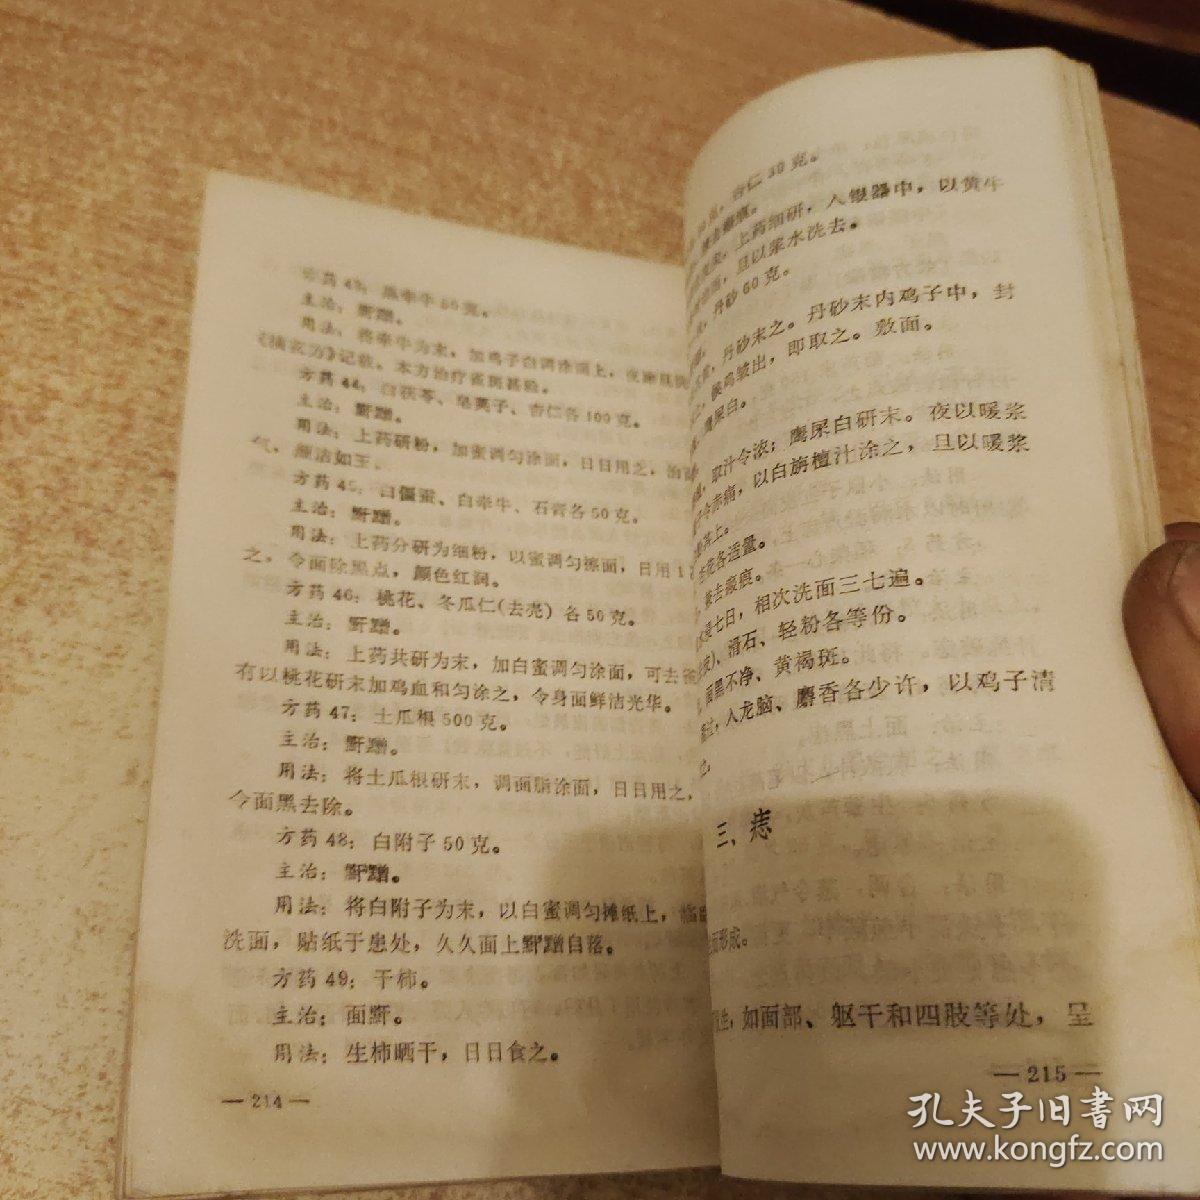 方药43：黑牵牛50克。
主治：黑干黑曾。
用法：将牵牛为末，加鸡子白调涂面上，夜涂旦洗
《摘玄方》记载，本方治疗雀斑甚验。
方药44：白茯苓、皂荚子、杏仁各100克。
主治：黑干黑曾。
用法：上药研粉，加蜜调匀涂面，日日用之，治
气，颜洁如玉。
方药45：白僵蚕、白牵牛、石膏各50克。
主治：黑干黑曾。
用法：上药分研为细粉，以蜜调匀擦面，日用1
之，令面除黑点，颜色红润。
方药46：桃花、冬瓜仁(去壳)各50克。
主治：黑干黑曾。
用法：上药共研为末，加白蜜调匀涂面，可去雀
有以桃花研末加鸡血和匀涂之，令身面鲜洁光华。
方药47：土瓜根500克。
主治：黑干黑曾。
用法：将土瓜根研末，调面脂涂面，日日用之，
令面黑去除。
方药48：白附子50克。
主治：黑干黑曾。
用法：将白附子为末，以白蜜调匀摊纸上，临
洗面，贴纸于患处，久久面上黑干黑曾自落。
方药49：干柿。
主治：面黑干。
用法：生柿晒干，日日食之。
—214—
杏仁30克。
上药细研，入银器中，以黄牛
旦以浆水洗去。
丹砂60克。
丹砂末之。丹砂末内鸡子中，封
候鸡皱出，即取之。敷面。
鹰屎白。
取汁令浓；鹰屎白研末。夜以暖浆
令赤痛，以白旃檀汁涂之，旦以暖浆
其上。
花各适量。
去瘢痕。
七日，相次洗面三七遍。
、滑石、轻粉各等份。
面黑不净、黄褐斑。
过，入龙脑、麝香各少许，以鸡子清
三、痣
而形成。
如面部、躯干和四肢等处，呈
—215—
孔夫子旧书网
www.kongfz.com